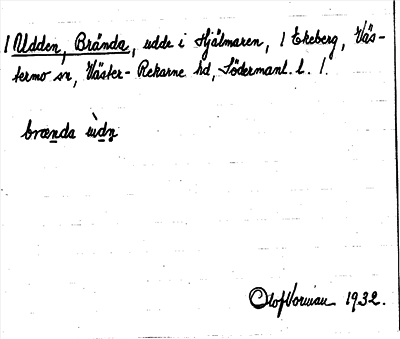 1 Udden, Brända, udde i Hjälmaren, 1 Ekeberg, Väs-
termo sn, Väster-Rekarne hd, Södermanl. l. 1.
brænda
Olof Vorman 1932.